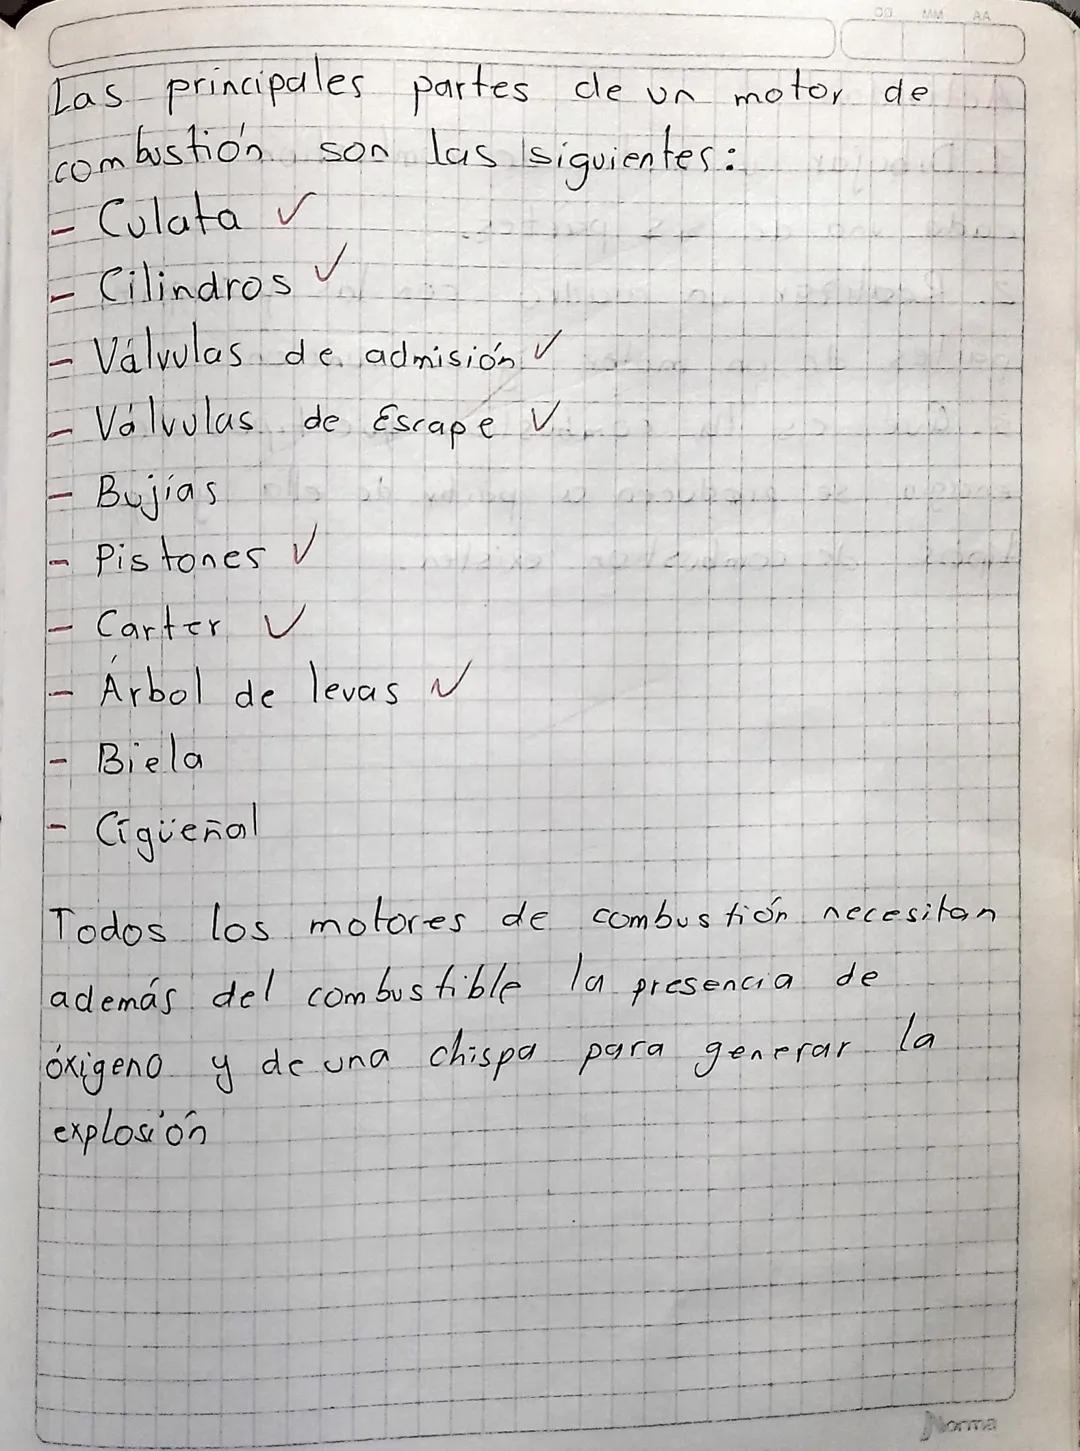 DD MM AA
Las principales partes de un motor de
combustión son las siguientes:
- Culata ✓
- Cilindros ✓
- Válvulas de admisión ✓
- Válvulas de Escape ✓
- Bujías
- Pistones ✓
- Carter ✓
- Árbol de levas ✓
- Biela
- Cigüeñal
Todos los motores de combustión necesitan
además del combustible la presencia de
óxigeno y de una chispa para generar la
explosión
Norma